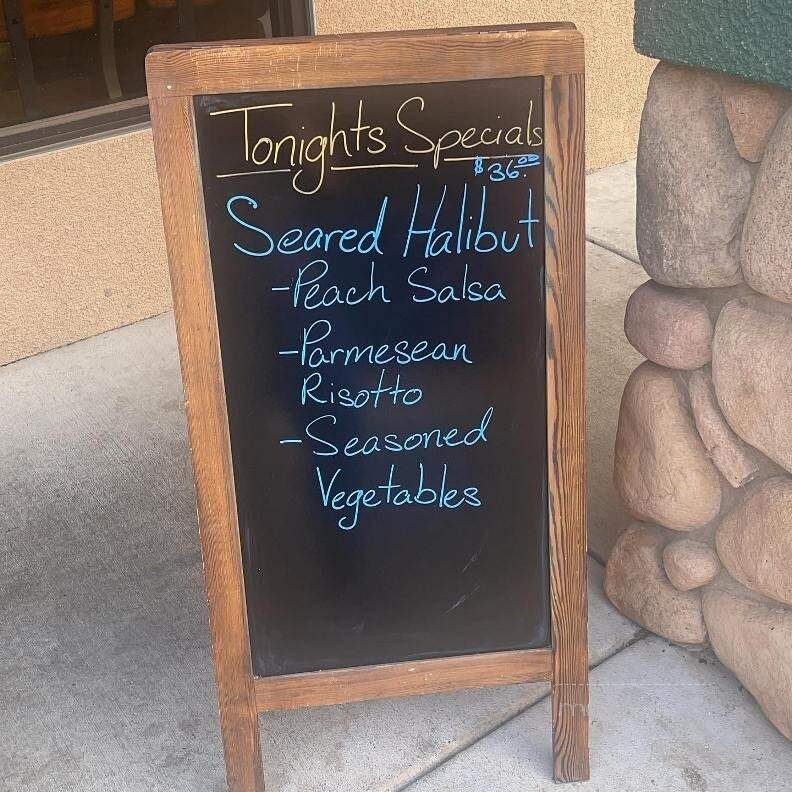 Tonights Specials
$36.00
Seared Halibut
-Peach Salsa
-Parmesean
Risotto
-Seasoned
Vegetables